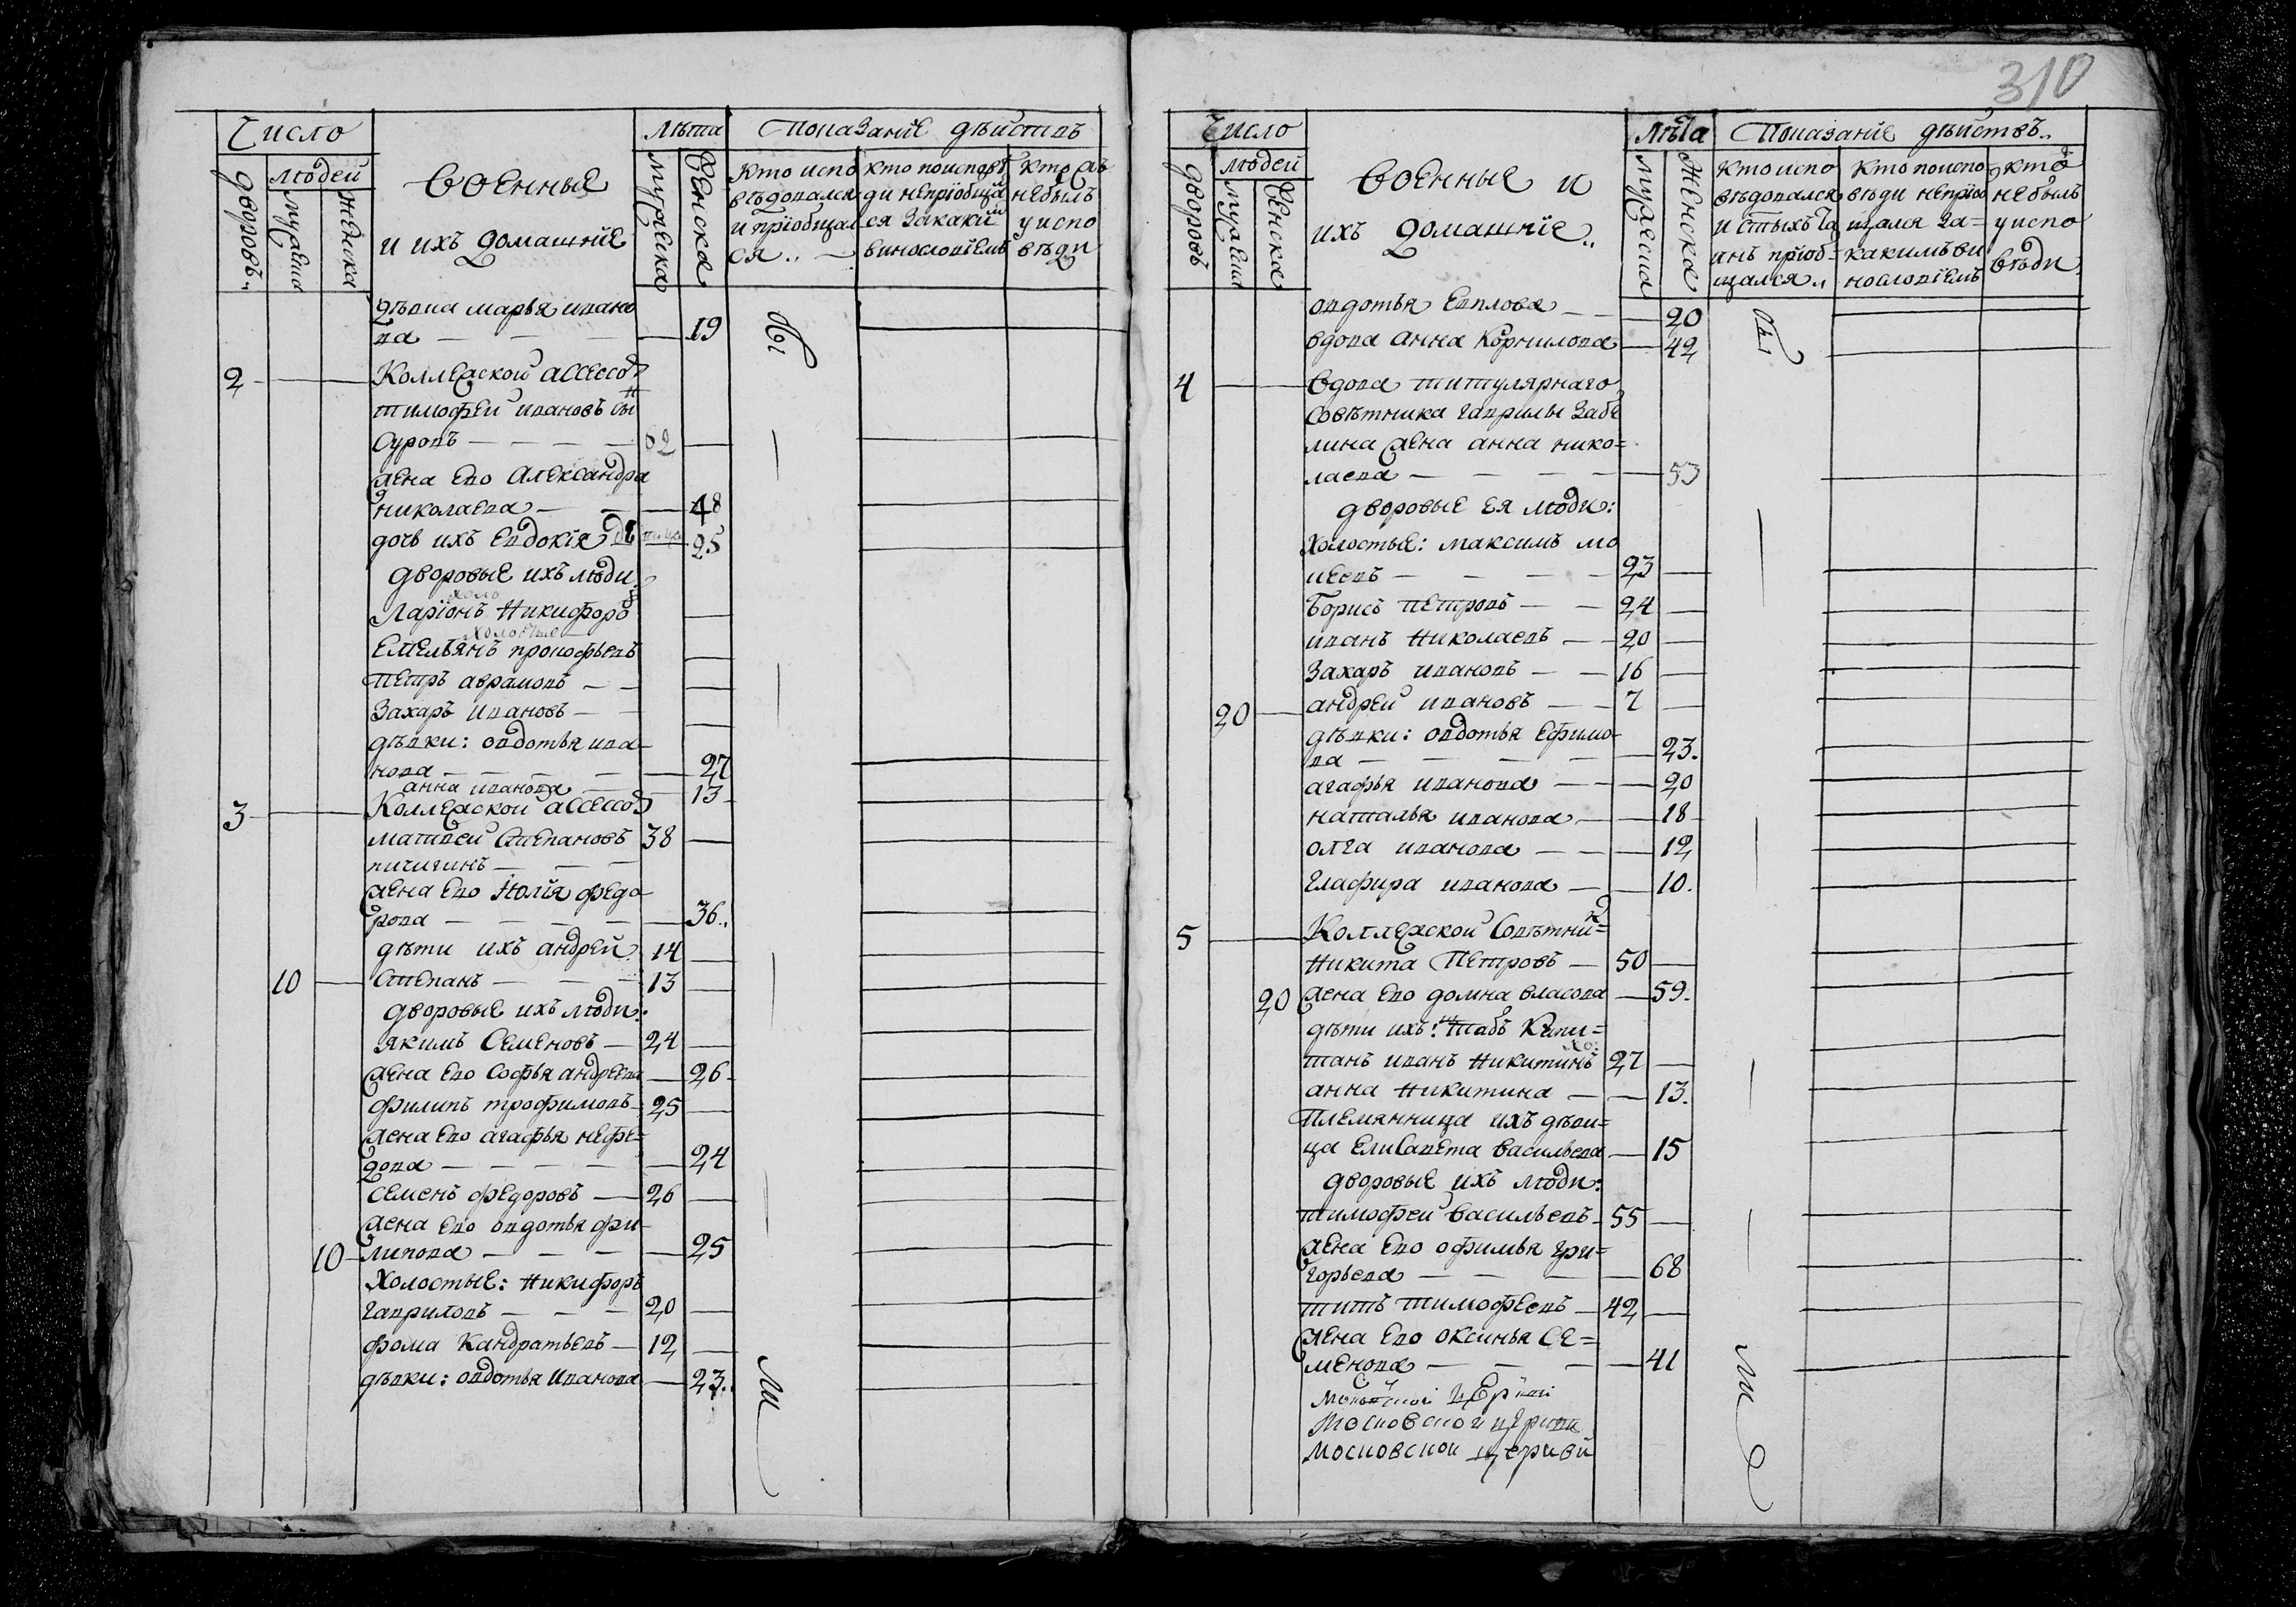 310
Число
людей
дворовъ
мужеска
женска
военные
и ихъ домашніе
лѣта
мужеска
женска
Показаніе дѣйствъ
кто испо
вѣдовался
и пріобщал
ся
кто по исповѣ
ди непріобщал
ся за какїи
винословіемъ
кто жъ
небылъ
у испо
вѣди
дѣвка марья ивано
ва — — — 19
2 Коллежской ассессоръ
тимофеи ивановъ сын
суровъ — — — — 62
жена его Александра
николаева — — — 48
дочь ихъ Евдокія 25
дворовые ихъ люди
холо
Ларїонъ никифоро
холостые
Емельянъ прокофьевъ
Петръ аврамовъ — —
Захаръ ивановъ — —
дѣвки: овдотья ива
нова — — — — 27
анна иванова — 13
3 Коллежской ассессоръ
матвеи Степановъ 38
пичигинъ — — —
жена его Юлїя федо
рова — — — — 36
дѣти ихъ андрей 14
10 Степанъ — — — 13
дворовые ихъ люди:
якимъ Семеновъ — 24
жена его Софья андреева — 26
филипъ трофимовъ 25
жена его агафья нефе=
дова — — — — 24
семенъ федоровъ — 26
жена его овдотья фи
10 липова — — — 25
Холостые: никифоръ
гавриловъ — — — 20
фома Кандратьевъ — 12
дѣвки: овдотья Иванова — 23
Число
людей
дворовъ
мужеска
женска
военные и
ихъ домашніе
лѣта
мужеска
женска
Показаніе дѣйствъ
кто испо
вѣдовался
и стыхъ та
инъ пріоб=
щался
кто по испо
вѣди непріоб
щался за=
какимъ ви
нословіемъ
кто
небылъ
у испо
вѣди
овдотья Евплова — — 20
вдова анна Корнилова — 42
4 вдова титулярнаго
совѣтника гаврилы Забе
лина жена анна нико=
лаева — — — — 53
дворовые ея люди:
Холостые: максимъ мо
исеевъ — — — — 23
Борисъ петровъ — — 24
иванъ николаевъ — — 20
Захаръ ивановъ — — 16
20 андреи ивановъ — — 7
дѣвки: овдотья Ефимо=
ва — — — — 23
агафья иванова — — 20
наталья иванова — — 18
олга иванова — — 12
глафира иванова — — 10
5 Коллежской Совѣтник
никита Петровъ — 50
20 жена его домна власова — 59
дѣти ихъ: штабъ Капи=
танъ иванъ никитинъ 27
анна никитина — — 13
Племянница ихъ дѣви=
ца Елисавета васильева — 15
дворовые ихъ люди:
тимофеи васильевъ 55
жена его офимья гри=
горьева — — — 68
титъ тимофеевъ — 42
жена его оксинья Се=
менова — — — 41
Московской
московской церкви